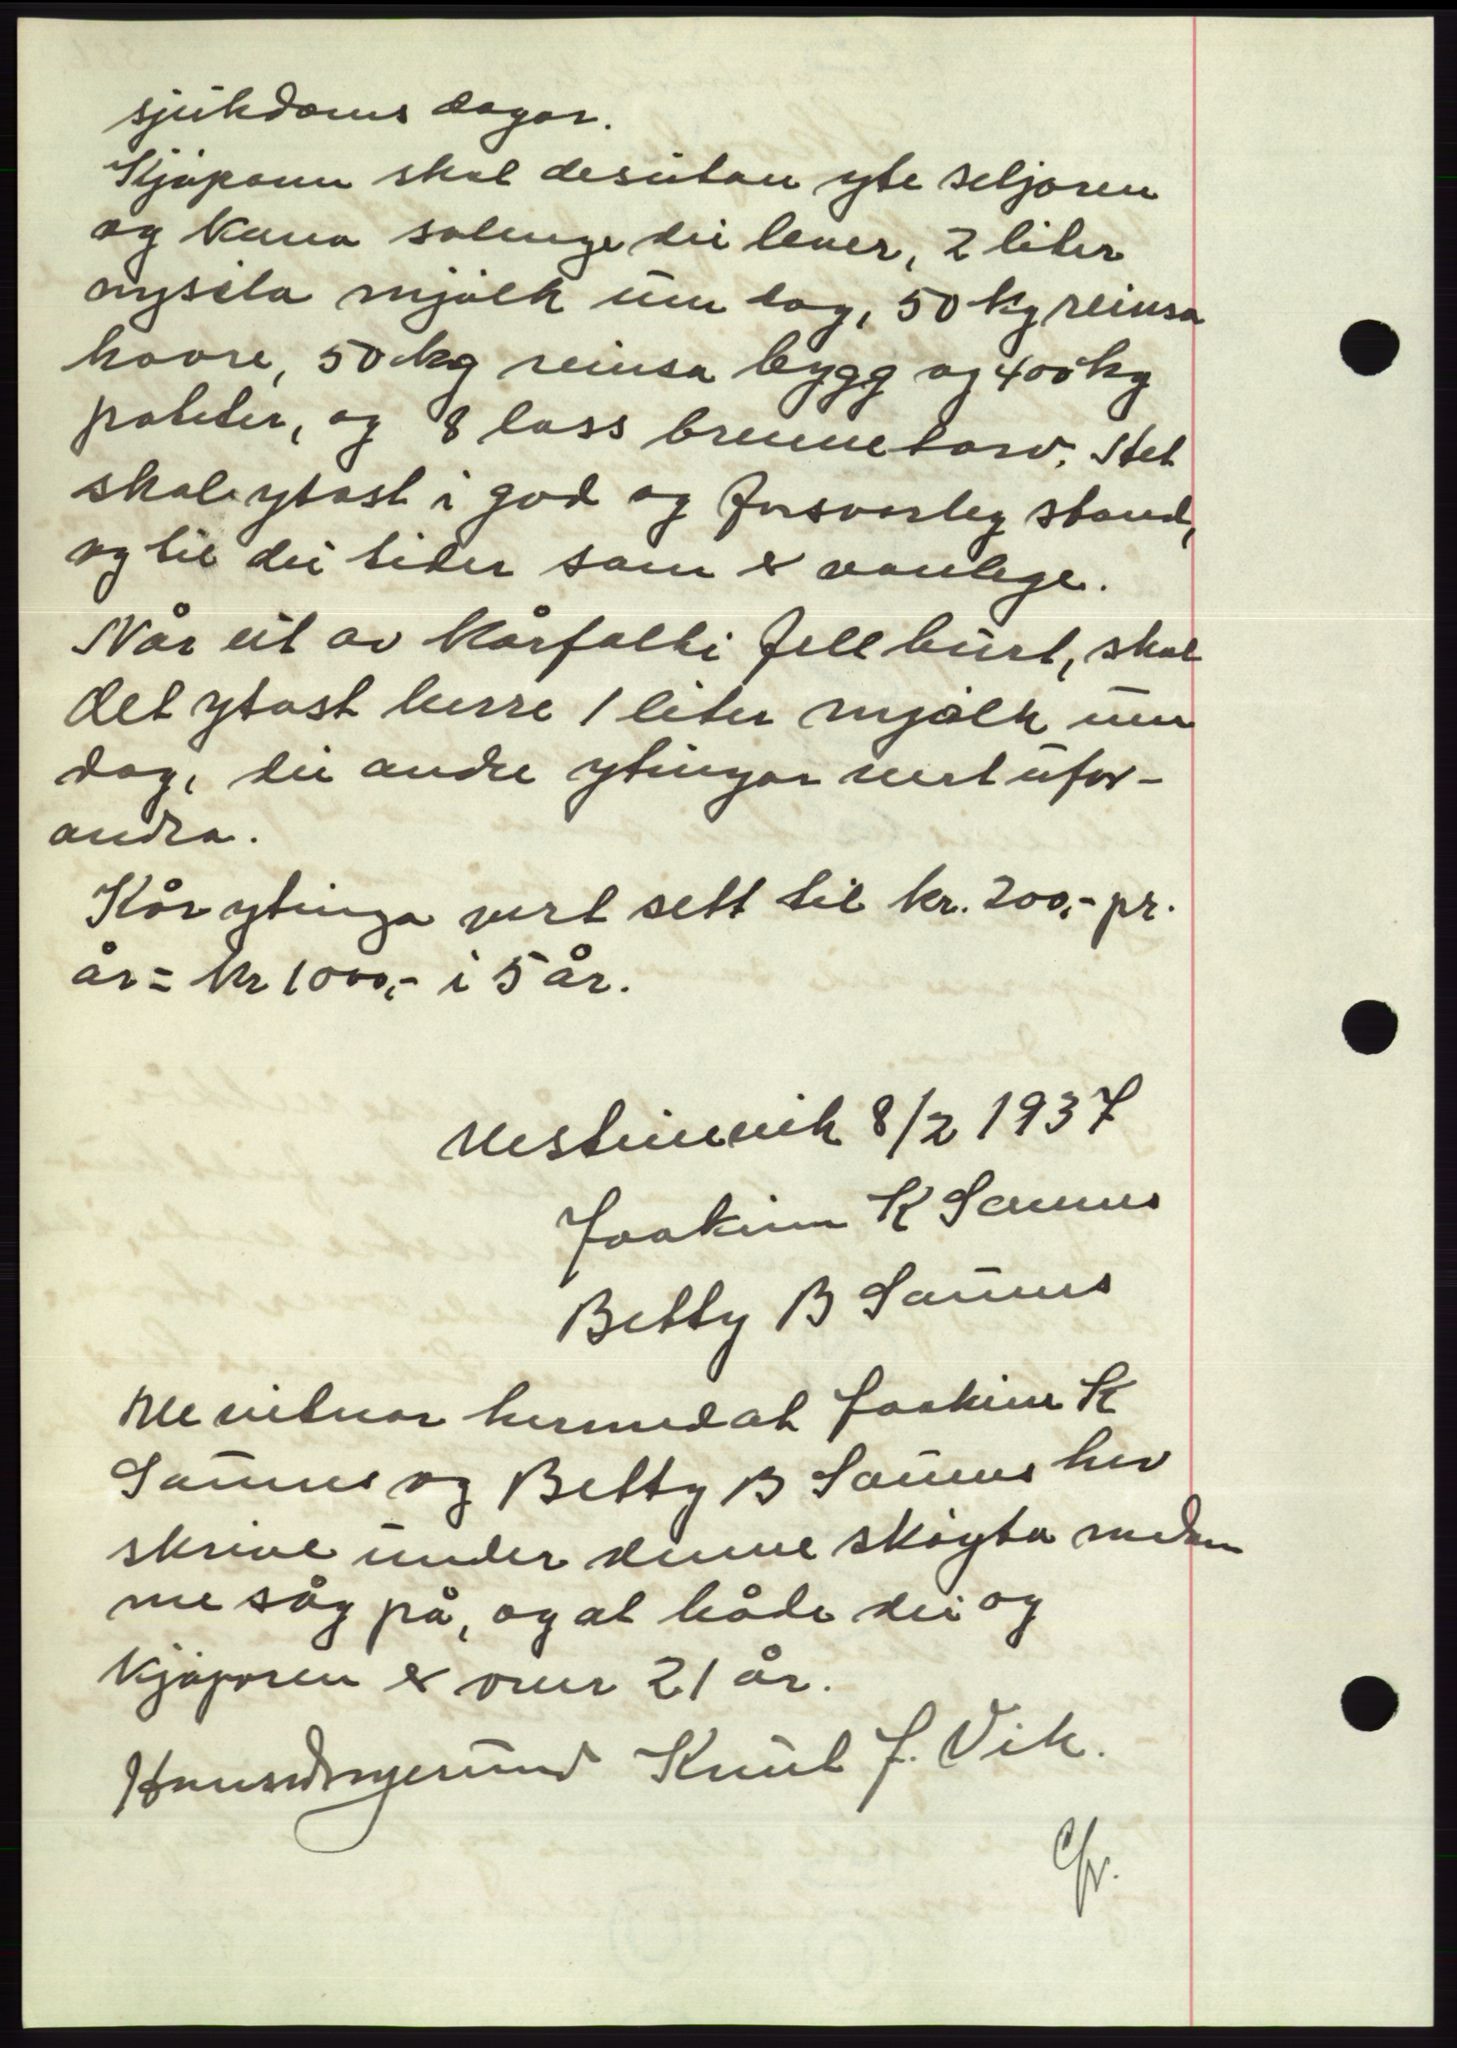 sjukdoms dagar.
Kjøparen skal desutan yte seljaren
og kona solenge dei lever, 2 liter
nysila mjølk um dag, 50 kg reinsa
havre, 50 kg reinsa bygg og 400 kg
poteter, og 8 lass brennetorv. Alt
skal ytast i god og forsvarleg stand,
og til dei tider som er vanlege.
Når eit av kårfolki fell burt, skal
det ytast berre 1 liter mjølk um
dag, dei andre ytingar vert ufor-
andra.
Kårytinga vert sett til kr. 200,- pr.
år = kr 1000,- i 5 år.
Vestimevik 8/2 1937
Joakim K Saunes
Betty B Saunes
Me vitnar hermed at Joakim K
Saunes og Betty B Saunes hev
skrive under denne skøyta medan
me såg på, og at både dei og
kjøparen er over 21 år.
Knut J. Vik.